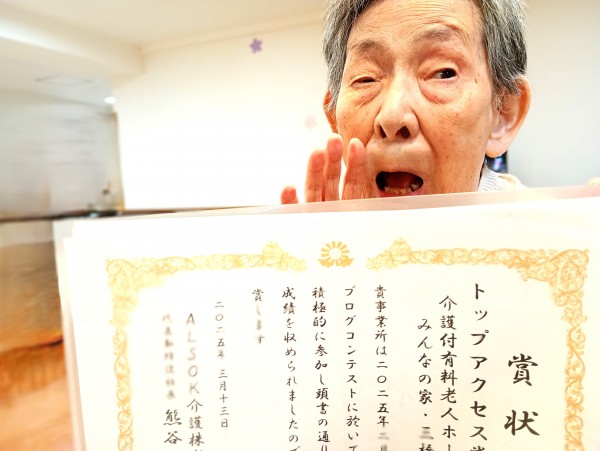 賞状
トップアクセス賞
介護付有料老人ホー
みんなの家・三橋
貴事業所は二〇二五年二月
ブログコンテストに於いて
積極的に参加し頭書の通り
成績を収められましたので
賞します
二〇二五年 三月十三日
ALSOK介護株
代表取締役社長 熊谷